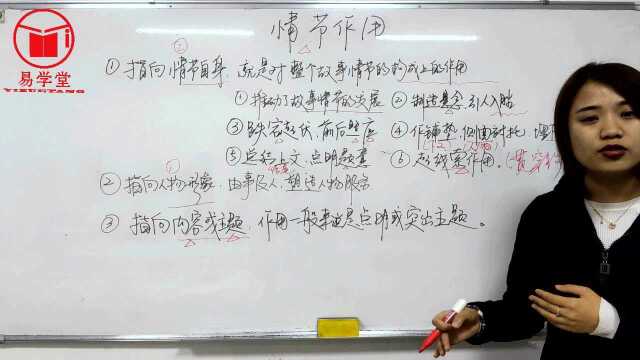 易学堂
YIXUETANG
情节作用
①指向情节自身，就是对整个故事情节的构成上的作用
①推动了故事情节的发展 ②制造悬念,引人入胜
③跌宕起伏,前后照应 ④作铺垫,侧面衬托,埋
⑤总结上文,点明题意 ⑥起线索作用。
②指向人物形象，由事及人,塑造人物服务
③指向内容或主题，作用一般是点明或突出主题。